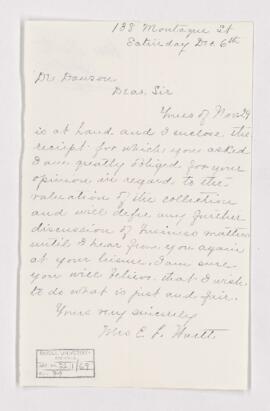 133 Montague St
Saturday Dec. 6th
Dr. Dawson
Dear Sir
Yours of Nov 29
is at hand and I enclose the
receipt for which you asked
I am greatly obliged for your
opinion in regard to the
valuation of the collection
and will defer any further
discussion of business matters
until I hear from you again
at your leisure. I am sure
you will believe that I wish
to do what is just and fair.
Yours very sincerely
Mrs E. S. Hartt
McGILL UNIVERSITY
ARCHIVES